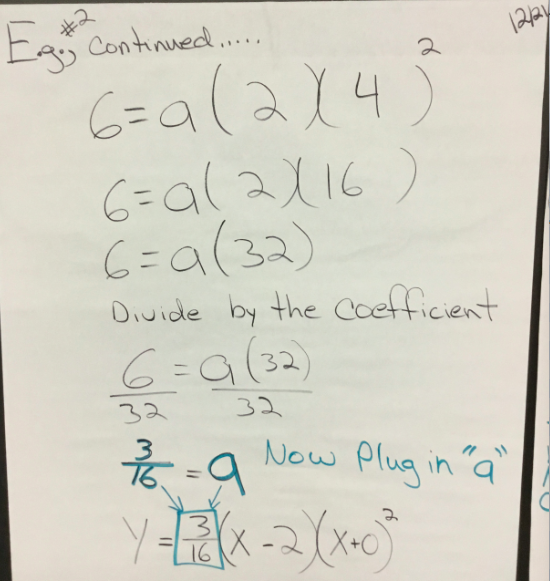 E.g., #2 continued.....
12/21
6=a(2)(4)²
6=a(2)(16)
6=a(32)
Divide by the coefficient
6/32 = a(32)/32
3/16 = a Now Plug in "a"
Y = 3/16(x-2)(x+0)²